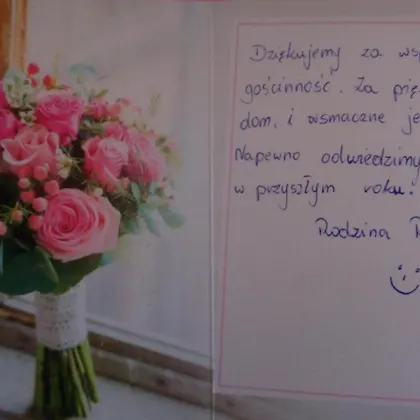 Dziękujemy za wsp
gościnność. Za pię
dom, i wsmaczne je
Napewno odwiedzimy
w przyszłym roku.
Rodzina R